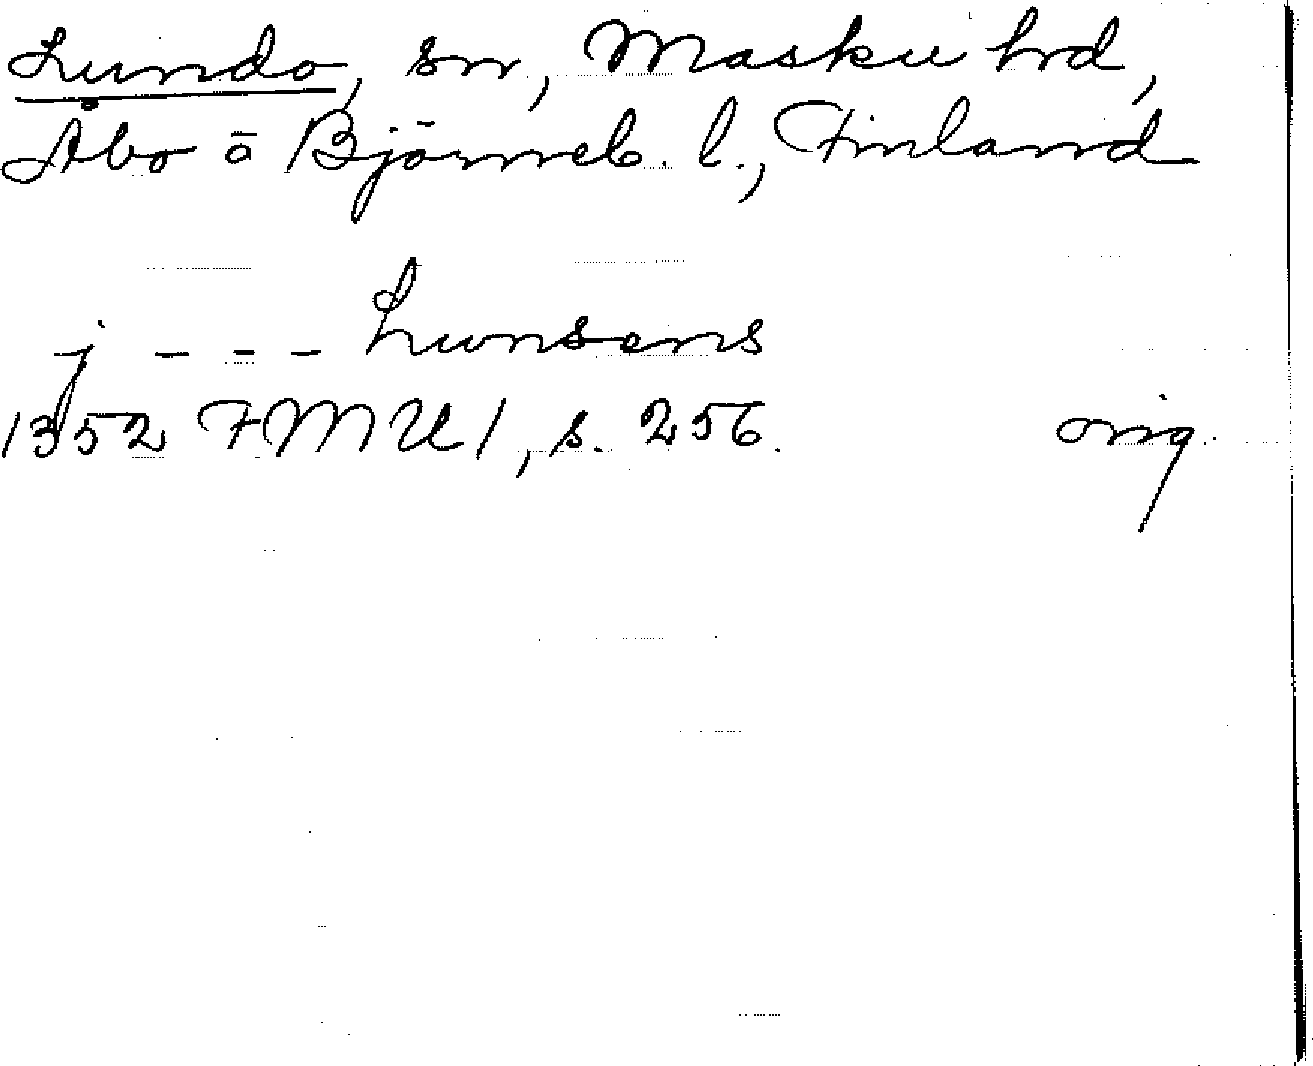 Lundo, sn, Masku hrd,
Åbo o Björneb. l., Finland
j - - - Lunsens
1352 FMU 1, s. 256. orig.